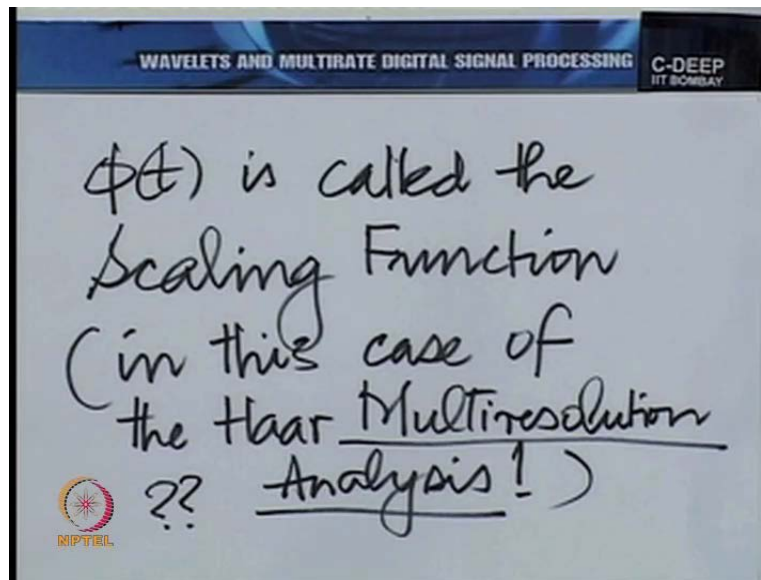 WAVELETS AND MULTIRATE DIGITAL SIGNAL PROCESSING
C-DEEP
IIT BOMBAY
ϕ(t) is called the
Scaling Function
(in this case of
the Haar Multiresolution
?? Analysis!)
NPTEL